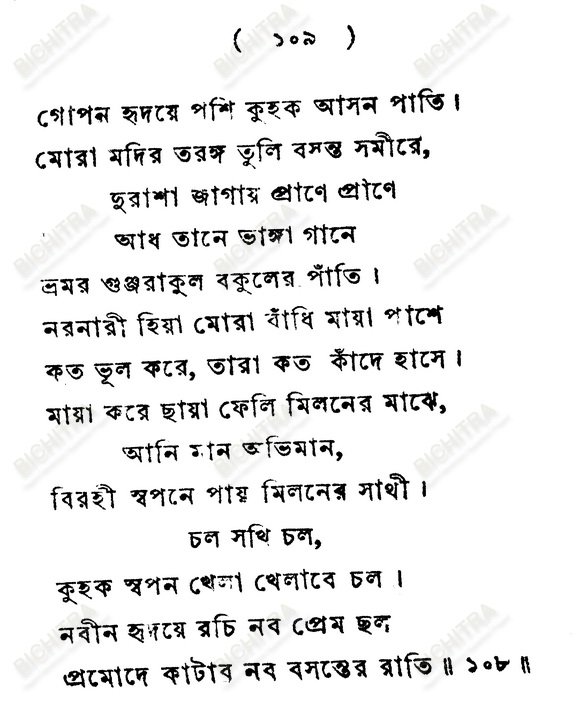 ( ১০৯ )
গোপন হৃদয়ে পশি কুহক আসন পাতি ।
মোরা মদির তরঙ্গ তুলি বসন্ত সমীরে,
দুরাশা জাগায় প্রাণে প্রাণে
আধ তানে ভাঙ্গা গানে
ভ্রমর গুঞ্জরাকুল বকুলের পাঁতি ।
নরনারী হিয়া মোরা বাঁধি মায়া পাশে
কত ভূল করে, তারা কত কাঁদে হাসে ।
মায়া করে ছায়া ফেলি মিলনের মাঝে,
আনি মান অভিমান,
বিরহী স্বপনে পায় মিলনের সাথী ।
চল সখি চল,
কুহক স্বপন খেলা খেলাবে চল ।
নবীন হৃদয়ে রচি নব প্রেম ছল
প্রমোদে কাটাব নব বসন্তের রাতি ॥ ১০৮ ॥
BICHITRA